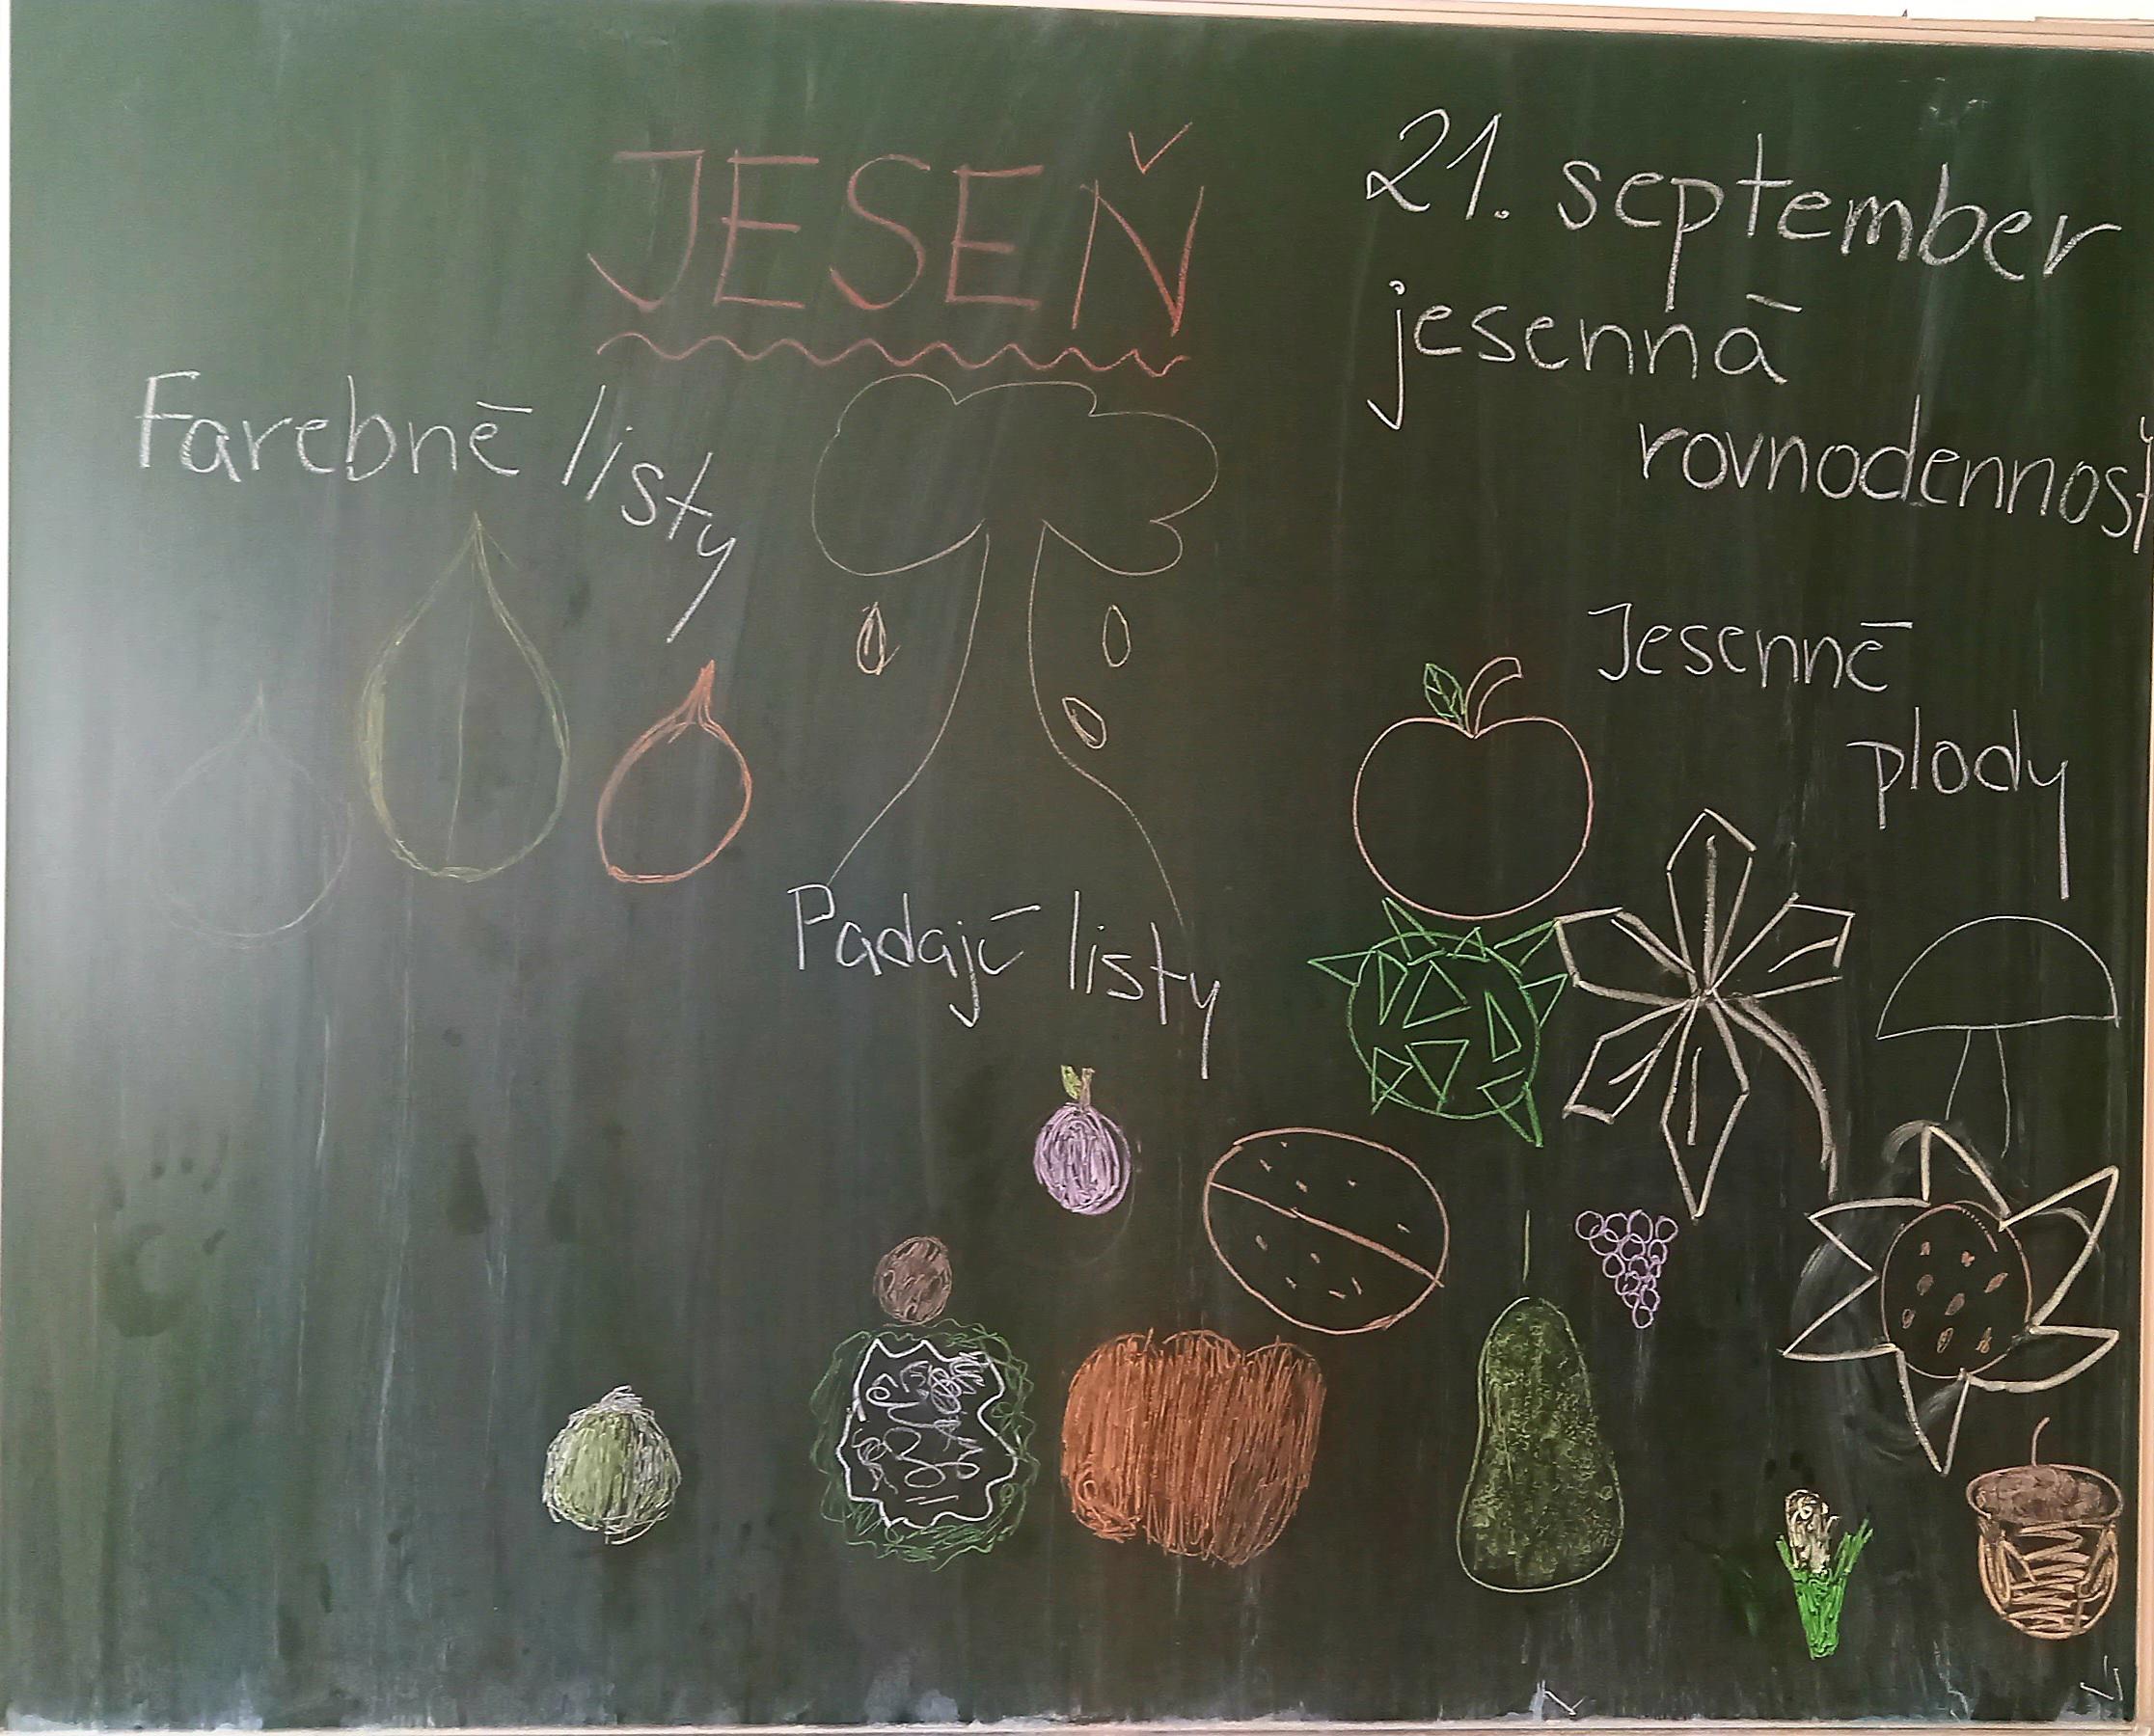 JESEŇ
21. september
jesenná
rovnodennosť
Farebné listy
Jesenné
plody
Padajú listy